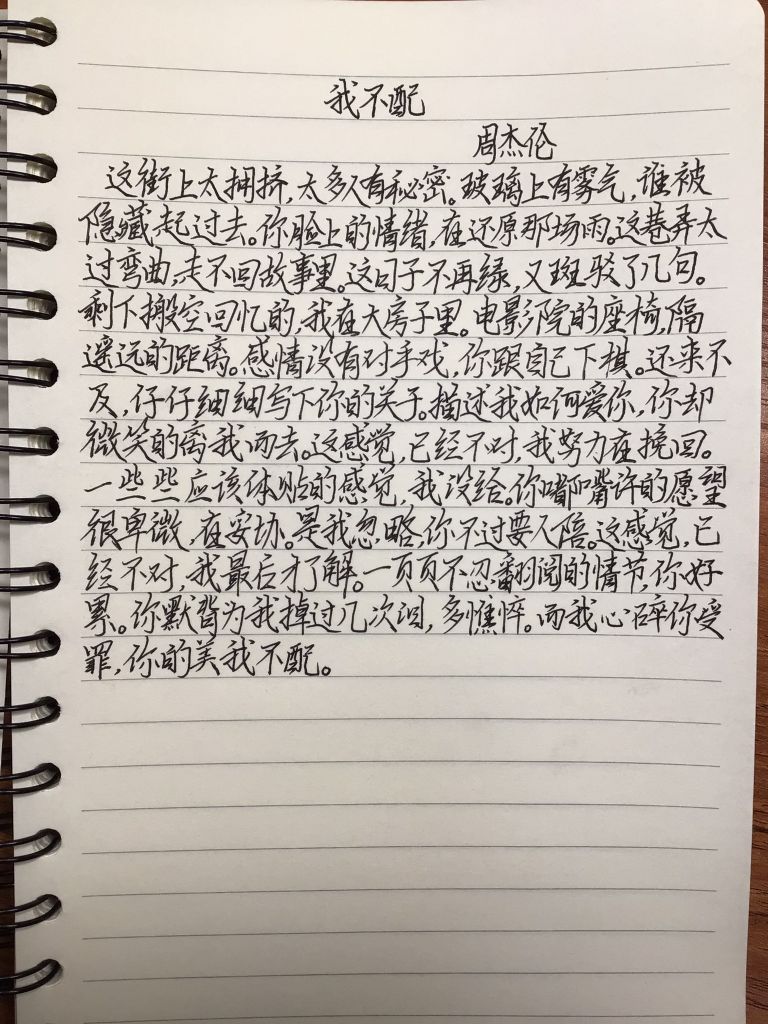 我不配
周杰伦
这街上太拥挤,太多人有秘密。玻璃上有雾气,谁被
隐藏起过去。你脸上的情绪,在还原那场雨。这巷弄太
过弯曲,走不回故事里。这日子不再绿,又斑驳了几句。
剩下搬空回忆的,我在大房子里。电影院的座椅,隔
遥远的距离。感情没有对手戏,你跟自己下棋。还来不
及,仔仔细细写下你的关于。描述我如何爱你,你却
微笑的离我而去。这感觉,已经不对,我努力在挽回。
一些些应该体贴的感觉,我没给。你嘟嘴许的愿望
很卑微,在妥协。是我忽略,你不过要人陪。这感觉,已
经不对,我最后才了解。一页页不忍翻阅的情节,你好
累。你默背为我掉过几次泪,多憔悴。而我心碎你受
罪,你的美我不配。